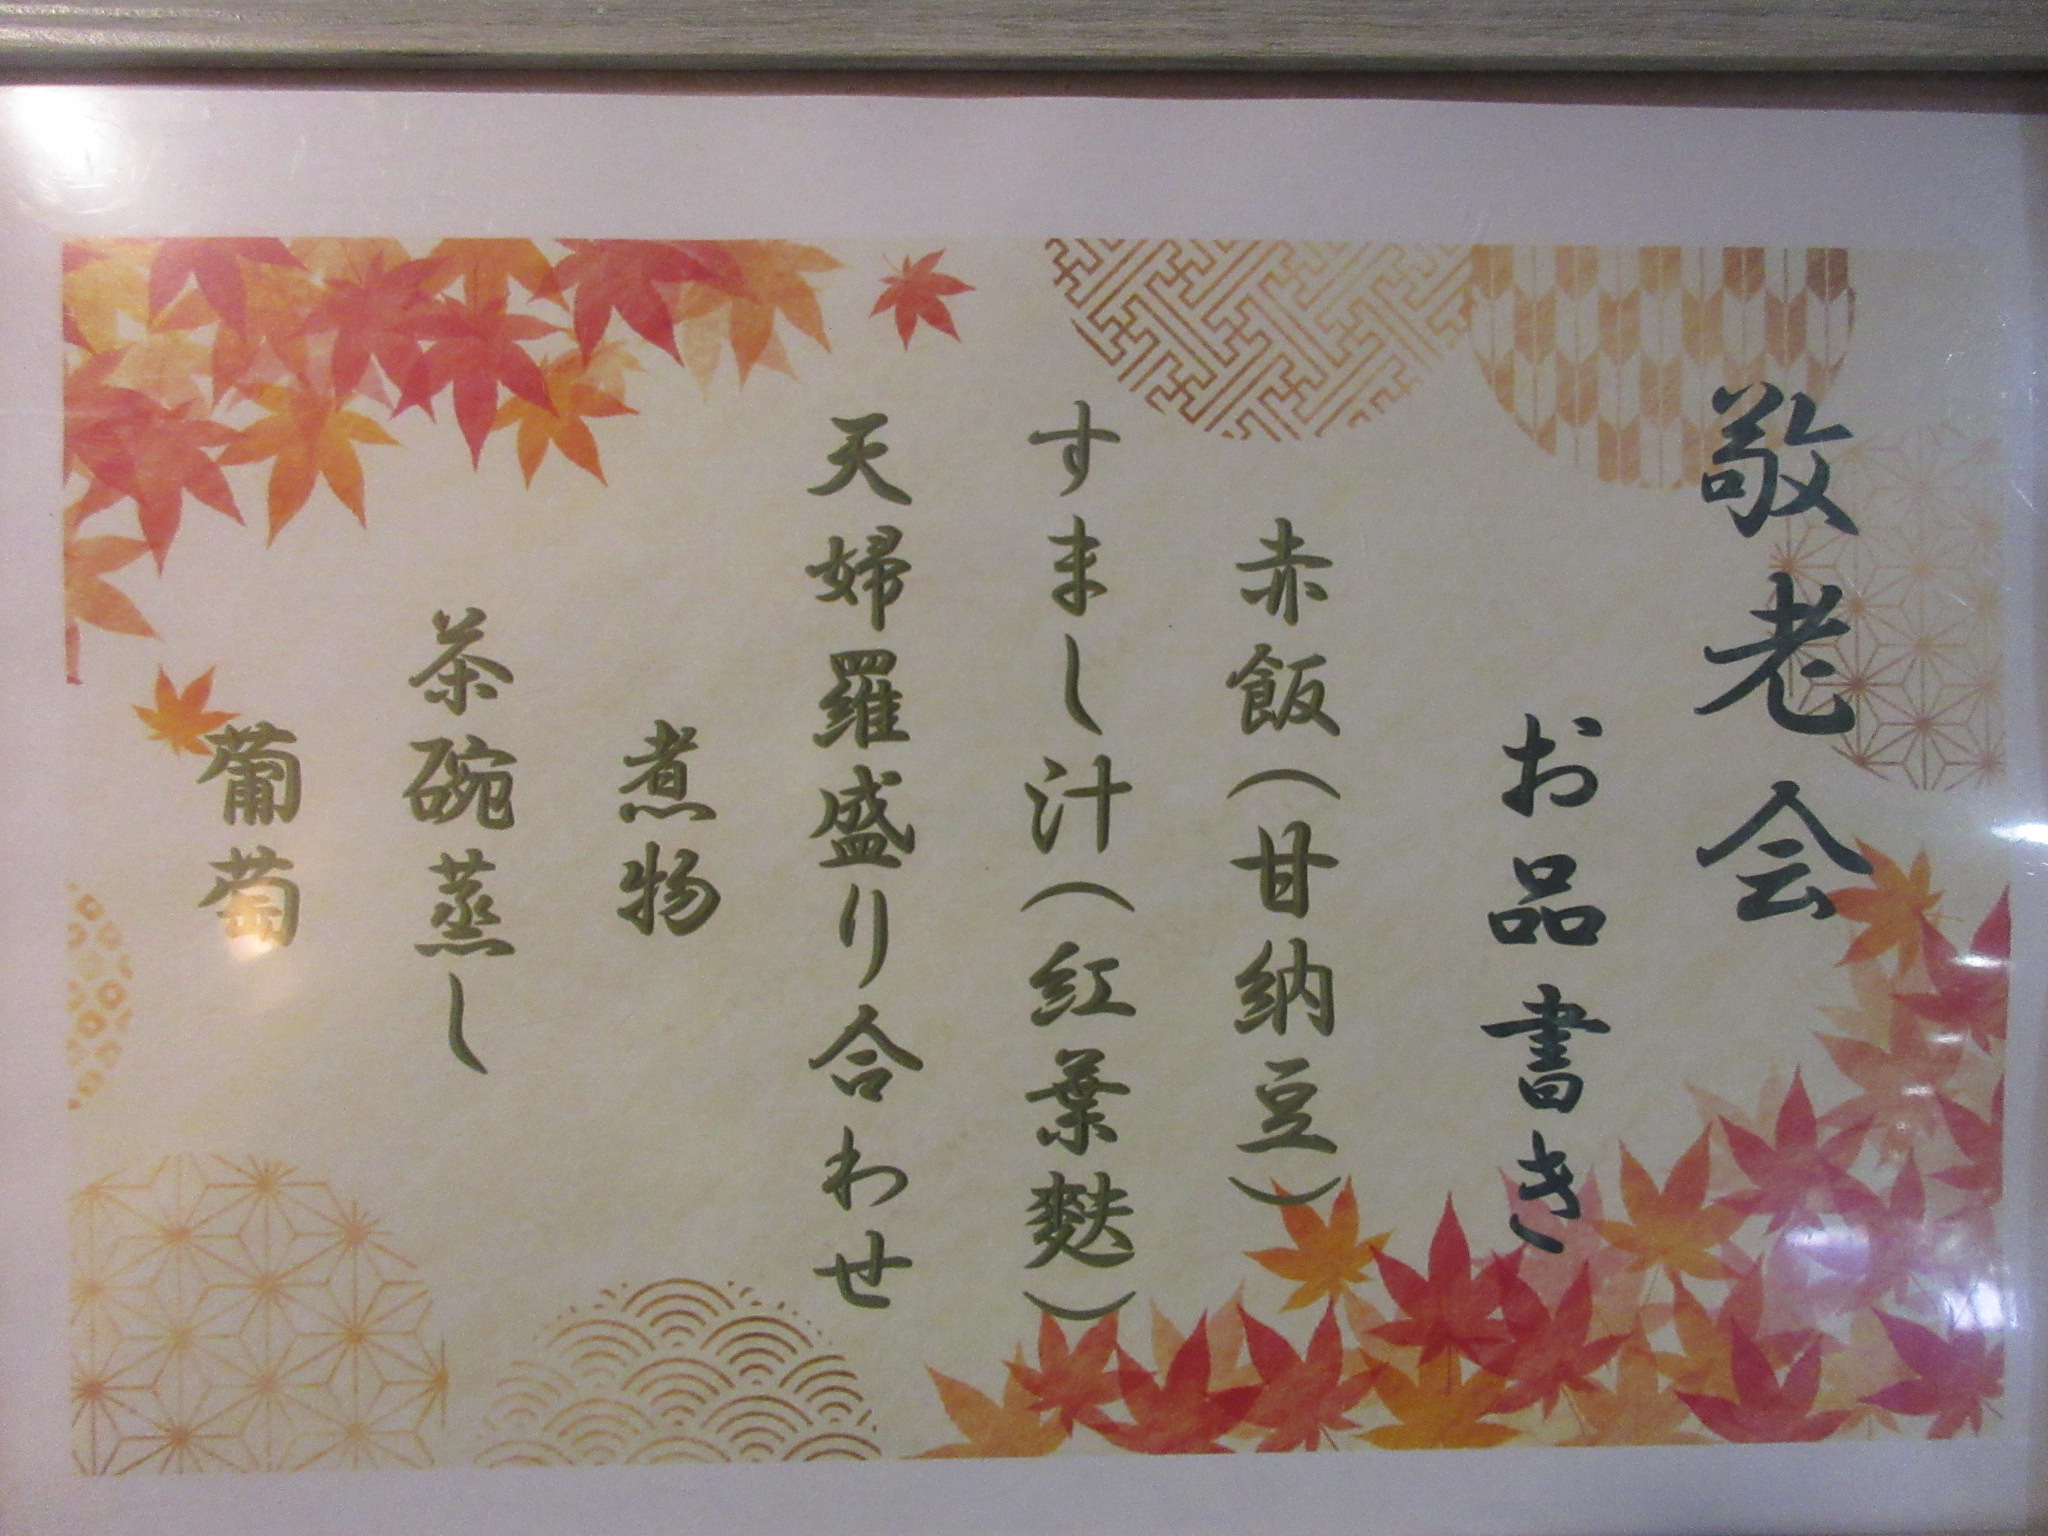 敬老会
お品書き
赤飯(甘納豆)
すまし汁(紅葉麩)
天婦羅盛り合わせ
煮物
茶碗蒸し
葡萄